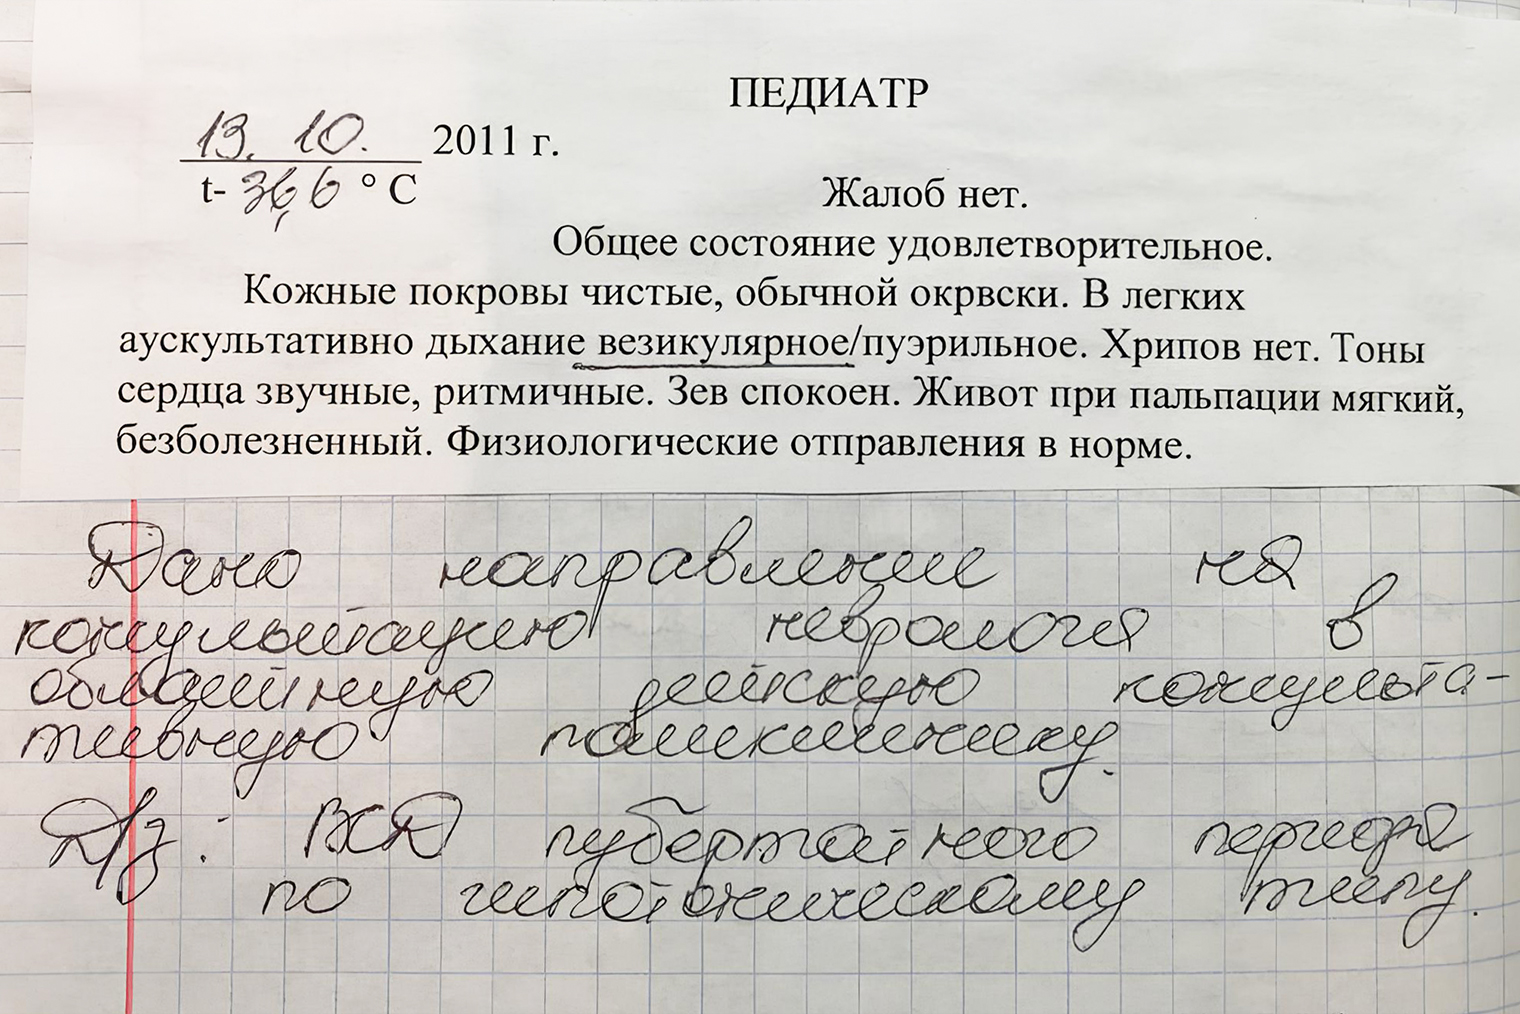 ПЕДИАТР
13. 10. 2011 г.
t- 36,6 ° С
Жалоб нет.
Общее состояние удовлетворительное.
Кожные покровы чистые, обычной окрвски. В легких
аускультативно дыхание везикулярное/пуэрильное. Хрипов нет. Тоны
сердца звучные, ритмичные. Зев спокоен. Живот при пальпации мягкий,
безболезненный. Физиологические отправления в норме.
Дано направление на
консультацию невролога в
областную детскую консульта-
тивную поликлинику.
Д/з: ВСД пубертатного периода
по гипотоническому типу.